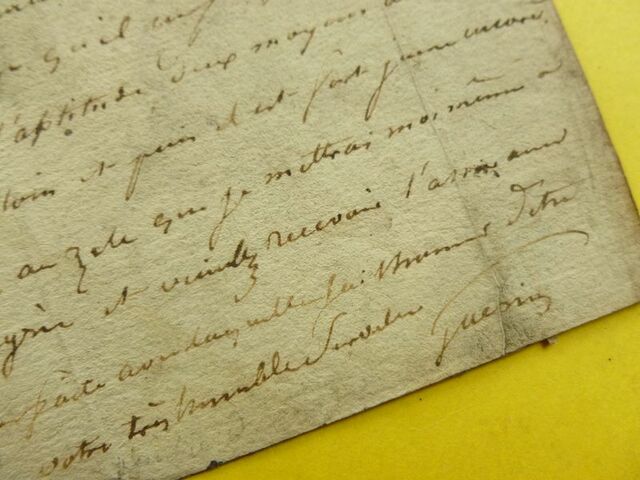 qu'il
l'aptitude deux moyens
loin et puis il est fort jeune encore
au zele que je mettrai moi même a
et veuillez recevoir l'assurance
avec laquelle j'ai l'honneur d'etre
votre très humble serviteur Guerin